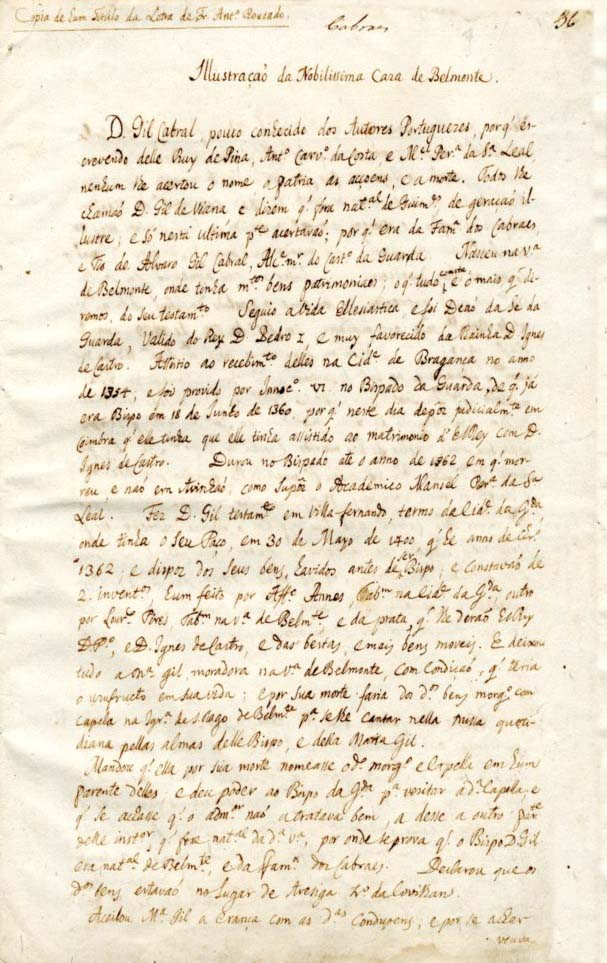 Copia de hum Titulo da Letra de Fr. Antº Rousado.
Cabraes
36
Illustraçaõ da Nobilissima Caza de Belmonte.
D. Gil Cabral, pouco conhecido dos Autores Portuguezes, porq' es-
crevendo delle Ruy de Pina, Antº Carvº da Costa, e Mel Perª da Sª Leal,
nenhum lhe acertou o nome a patria, as acçoens, e a morte. Todos lhe
chamaõ D. Gil de Viana e dizem q' fora natal de Guimes de geraçaõ il-
lustre; e só nesta ultima pte acertaraõ; por q' era da Famª dos Cabraes,
e Tio de Alvaro Gil Cabral, Alcº mr do Castº da Guarda Nasceu na vª
de Belmonte, onde tinha mtos bens patrimoniaes; o q' tudo, e o mais q' di-
remos, do seu testamto Seguio a vida Ecclesiastica e foi Deaõ da Sé da
Guarda, Valido do Rey D. Pedro I, e muy favorecido da Rainha D. Ignes
de Castro. Assistio ao recebimto delles na Cide de Bragança no anno
de 1354, e foi provido por Innocº VI. no Bispado da Guarda, de q' já
era Bispo em 18 de Junho de 1360, por q' neste dia depôz judicialmte em
Coimbra q' ele tinha que ele tinha assistido ao matrimonio d'ElRey com D.
Ignes de Castro. Durou no Bispado até o anno de 1362 em q' mor-
reu, e naõ em Avinhaõ, como supôz o Academico Manoel Perª da Sª
Leal. Fez D. Gil testamto em Villa-fernando, termo da Cide da Gda
onde tinha o seu Paço, em 30 de Mayo de 1400 q' he anno de
1362; e dispoz dos seus bens, havidos antes de ser Bispo, e constavaõ de
2. inventos, hum feito por Affº Annes, Tabm na Cide da Gda, outro
por Lourº Pires Tabm na vª de Belmte e da prata, q' lhe deraõ ElRey
D. Pº, e D. Ignes de Castro, e das bestas, e mais bens moveis. E deixou
tudo a Mª gil, moradora na vª de Belmonte, com condicaõ, q' teria
o uzufructo em sua vida; e por sua morte faria dos dos bens morgº com
capela na Igrª de S. Tiago de Belmte pª se lhe cantar nella missa quoti-
diana pellas almas delle Bispo, e della Maria Gil.
Mandou q' ella por sua morte nomeasse o dº morgº e Capella em hum
parente deles, e deu poder ao Bispo da Gda pª vezitar a dª Capela, e
q' se achasse q' o admor naõ a tratava bem, a desse a outro parte
delle instor q' fose natal da dª vª, por onde se prova q' o Bispo D. Gil
era natal de Belmte, e da Famª dos Cabraes. Declarou que os
dos bens estavaõ no Lugar de tº da Covilhan.
Aceitou Mª Gil a Erança com as das Condiçoens; e por se achar